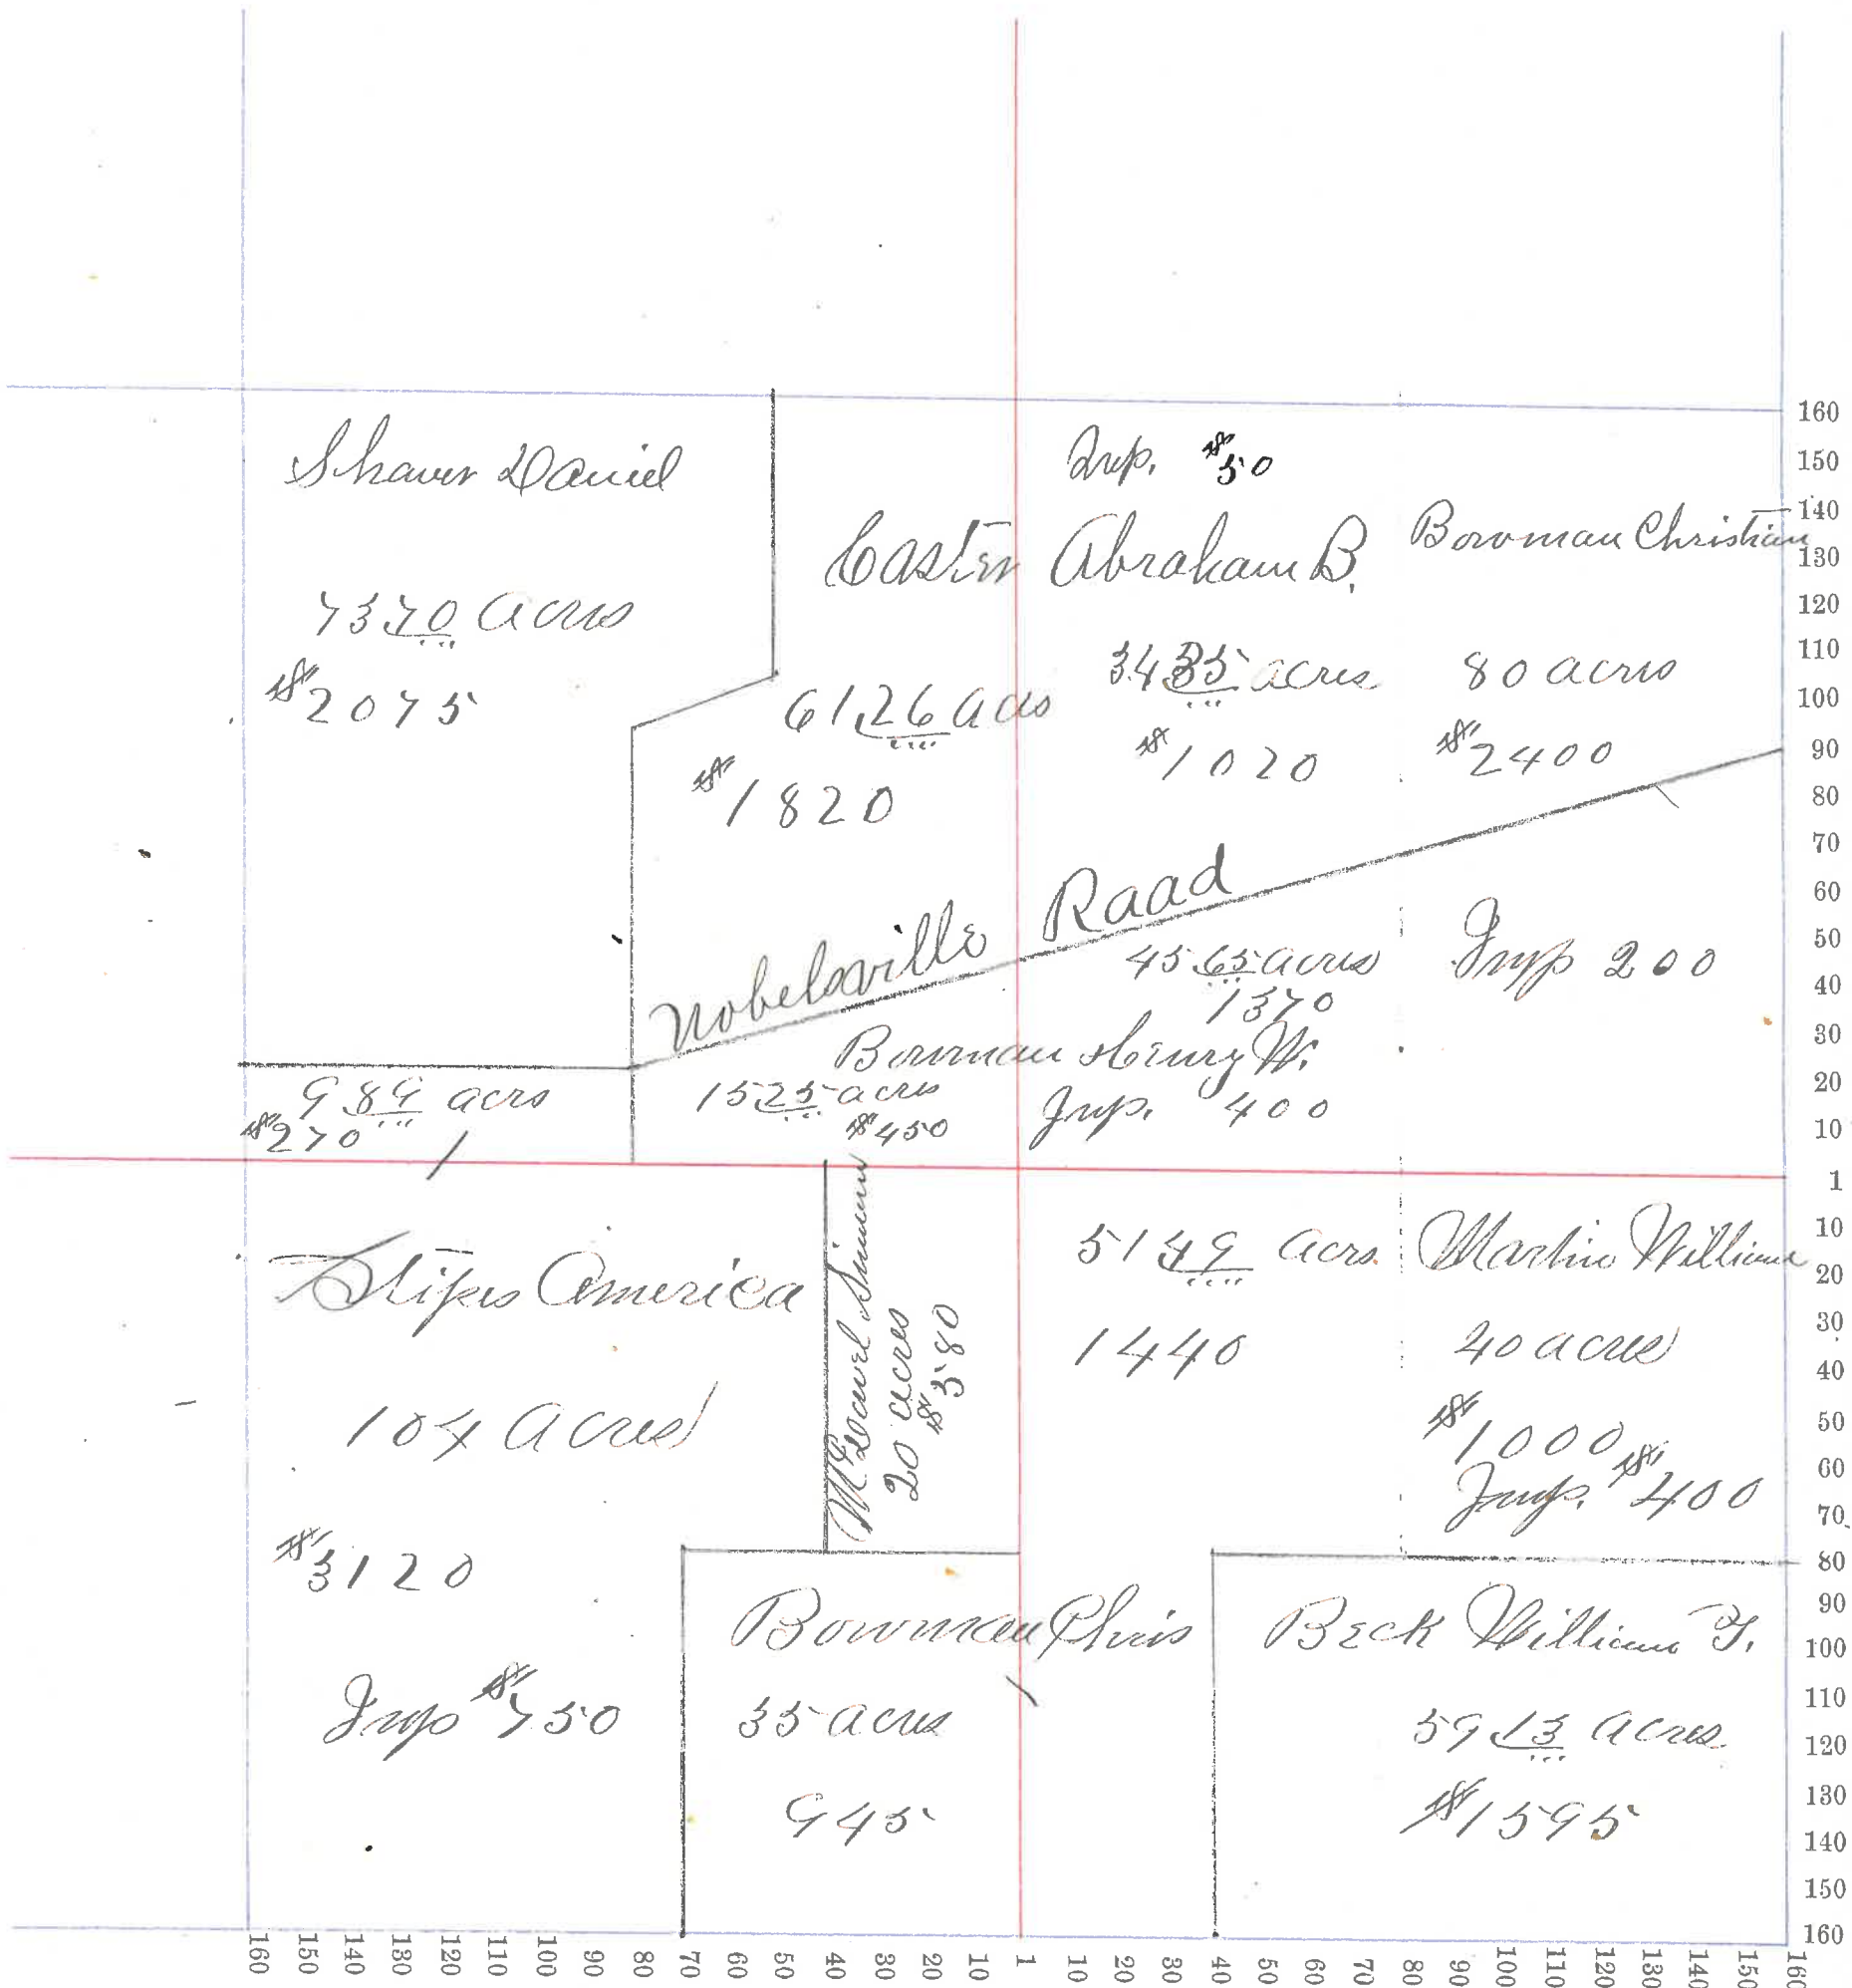 Shaver Daniel
73 70 acres
$2075
Imp. $50
Easter Abraham B.
61 26 acrs
$1820
34 35 acres
$1020
Bowman Christian
80 acres
$2400
Nobelsville Raad
45 65 acres
1370
Imp 200
Bowman Henry W.
Imp. 400
15 25 acres
$450
9 89 acrs
$270
Stipes America
104 Acres
$3120
Imp $750
20 acres
$580
51 49 Acrs.
1440
Martin William
40 acres
$1000
Imp. $400
Bowman Chris
35 acres
945
Beck William
59 13 Acres
$1595
160
150
140
130
120
110
100
90
80
70
60
50
40
30
20
10
1
10
20
30
40
50
60
70
80
90
100
110
120
130
140
150
160
160 150 140 130 120 110 100 90 80 70 60 50 40 30 20 10 1 10 20 30 40 50 60 70 80 90 100 110 120 130 140 150 160